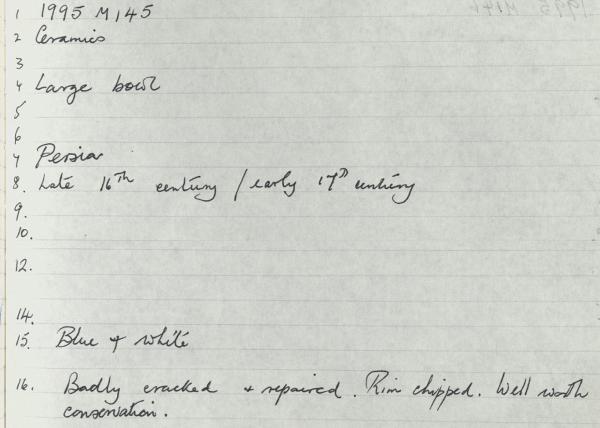 1 1995 M145
2 Ceramics
3
4 Large bowl
5
6
7 Persia
8. Late 16th century / early 17th century
9.
10.
12.
14.
15. Blue + white
16. Badly cracked + repaired. Rim chipped. Well worth
conservation.